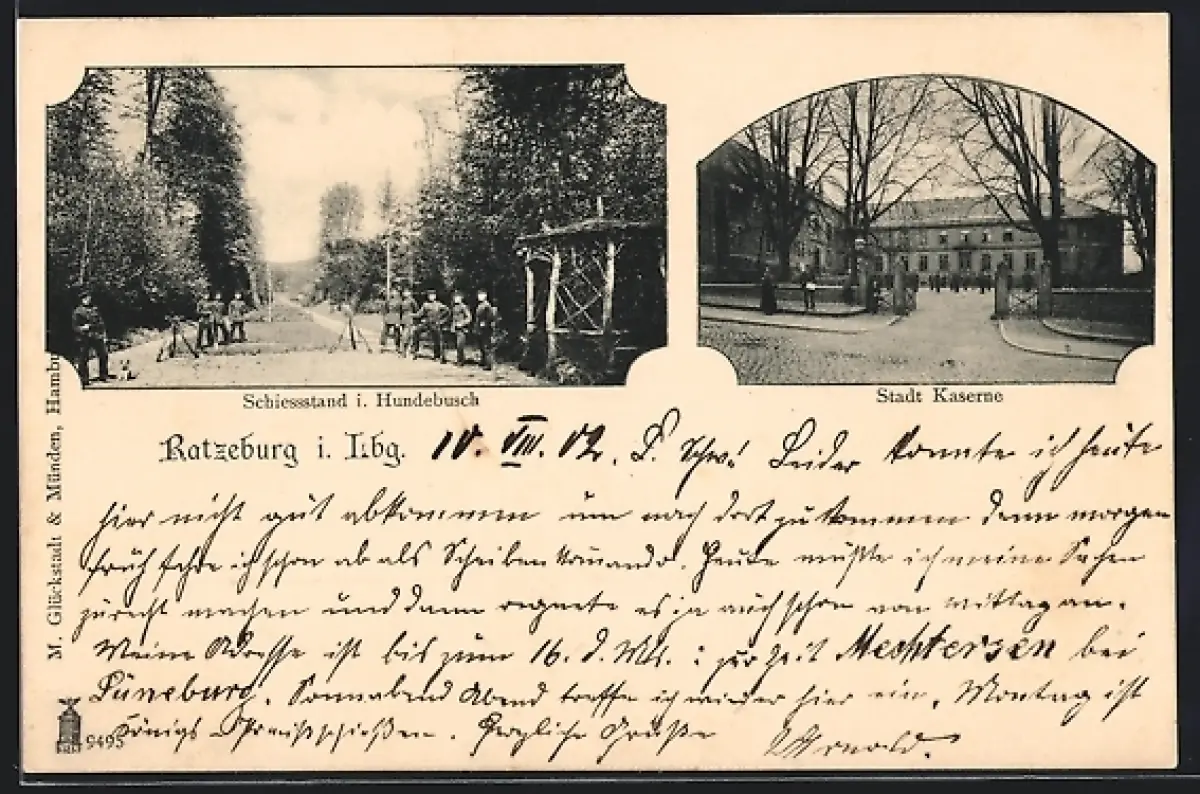 Schiessstand i. Hundebusch
Stadt Kaserne
Ratzeburg i. Lbg. 10. VIII. 02. L. Schw! Leider konnte ich heute
hier nicht gut abkommen um nach dort zu kommen denn morgen
früh fahre ich schon ab als Scheibenkommando. Heute mußte ich meine Sachen
zurecht machen und dann regnete es ja auch schon von Mittag an.
Meine Adresse ist bis zum 16. d. Mts.: zur Zeit Mechtersen bei
Lüneburg. Sonnabend Abend treffe ich wieder hier ein, Montag ist
Königs Preißschießen. Herzliche Grüße Arnold.
M. Glückstadt & Münden, Hambu
9495